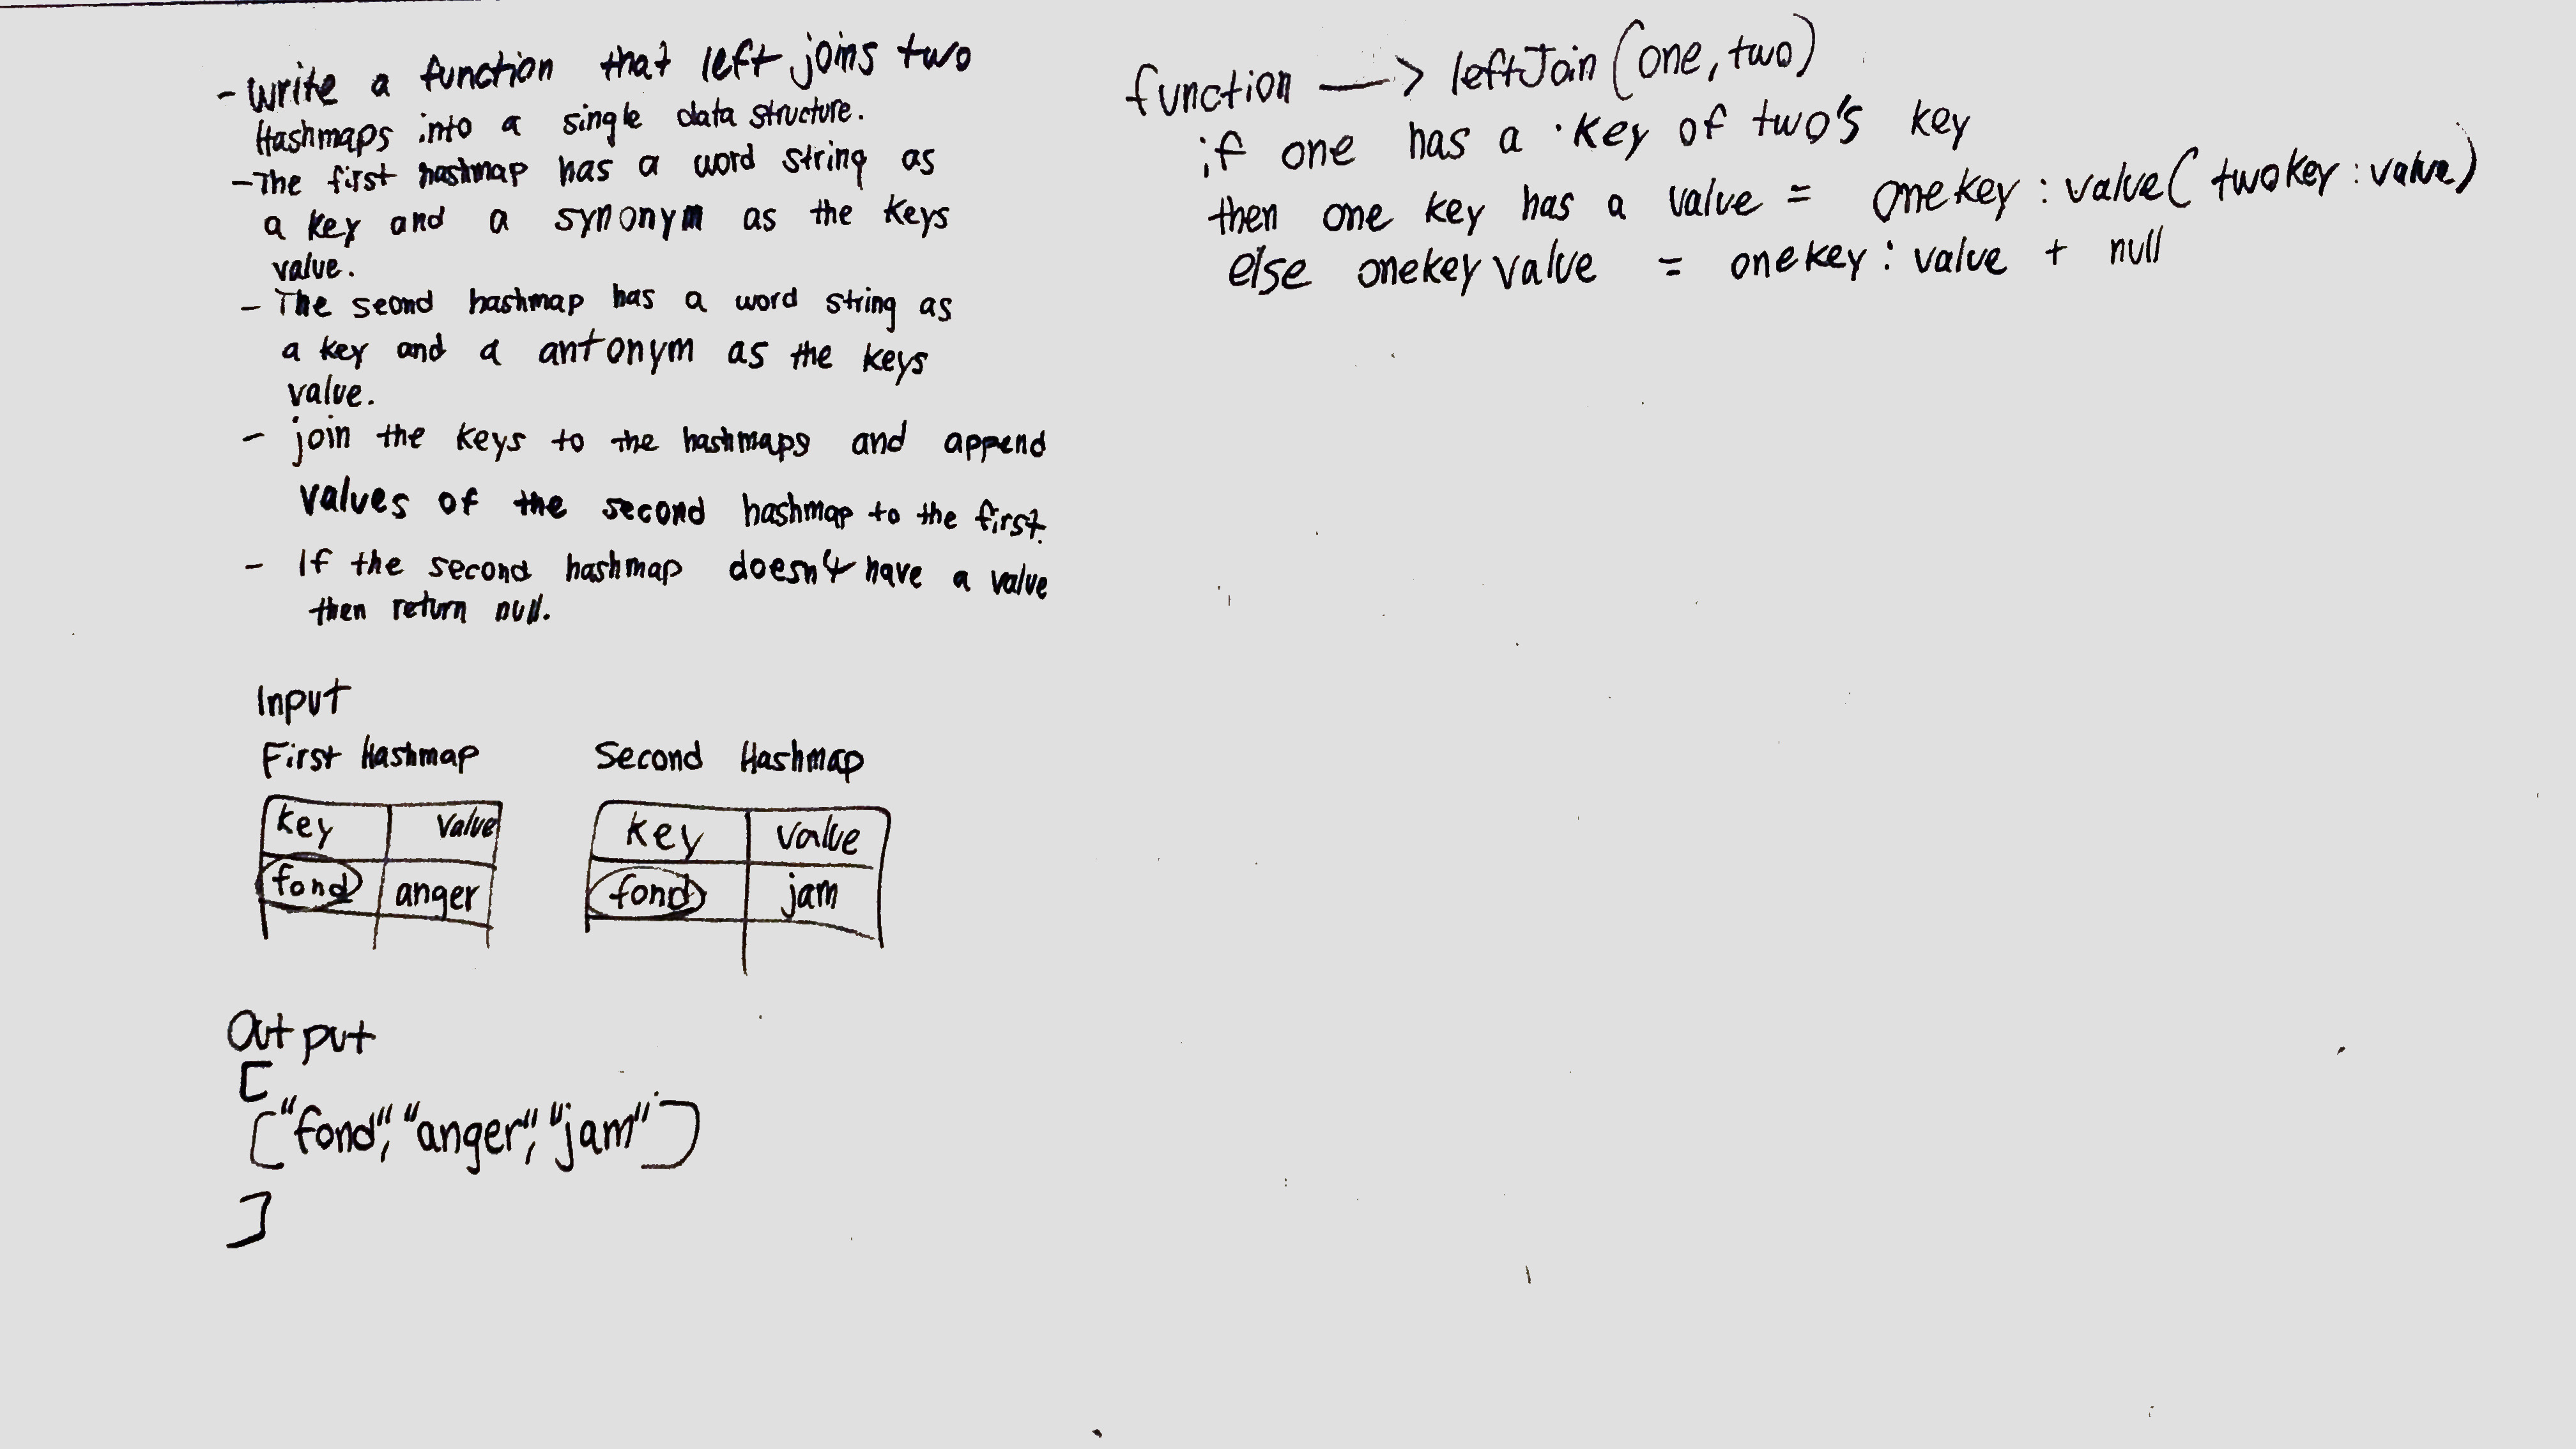 - Write a function that left joins two
Hashmaps into a single data structure.
- The first hashmap has a word string as
a key and a synonym as the keys
value.
- The seond hashmap has a word string as
a key and a antonym as the keys
value.
- join the keys to the hashmaps and append
values of the second hashmap to the first.
- If the second hashmap doesn't have a value
then return null.
Input
First Hashmap Second Hashmap
Key Value Key value
fond anger fond jam
Output
[
["fond", "anger", "jam"]
]
function —> leftJoin (one, two)
if one has a key of two's key
then one key has a value = onekey : value( twokey : value)
else onekey value = onekey : value + null